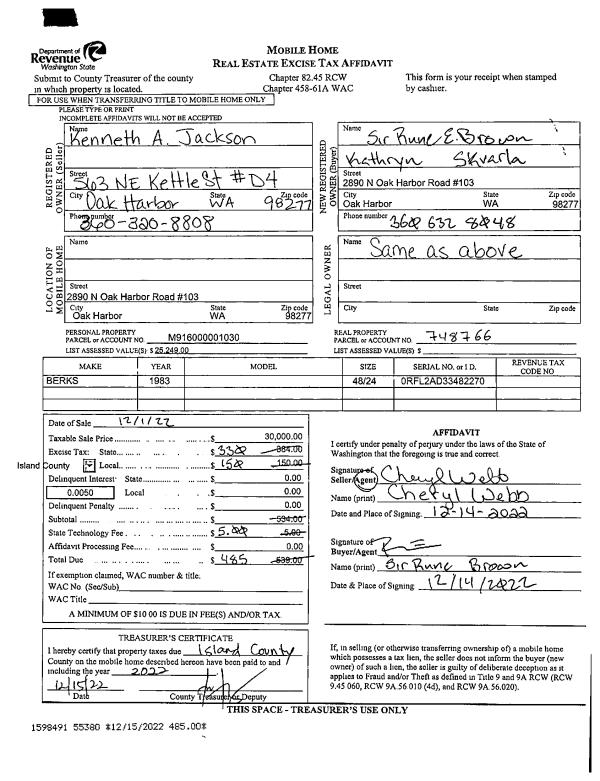 Department of
Revenue
Washington State
MOBILE HOME
REAL ESTATE EXCISE TAX AFFIDAVIT
Submit to County Treasurer of the county
in which property is located.
Chapter 82.45 RCW
Chapter 458-61A WAC
This form is your receipt when stamped
by cashier.
FOR USE WHEN TRANSFERRING TITLE TO MOBILE HOME ONLY
PLEASE TYPE OR PRINT
INCOMPLETE AFFIDAVITS WILL NOT BE ACCEPTED
REGISTERED OWNER (Seller)
Name
Kenneth A. Jackson
Street
563 NE Kettle St #D4
City State Zip code
Oak Harbor WA 98277
Phone number
360-320-8808
NEW REGISTERED OWNER (Buyer)
Name
Sir Rune E. Brown
Kathryn Skvarla
Street
2890 N Oak Harbor Road #103
City State Zip code
Oak Harbor WA 98277
Phone number 360 632 8848
LOCATION OF MOBILE HOME
Name
Street
2890 N Oak Harbor Road #103
City State Zip code
Oak Harbor WA 98277
LEGAL OWNER
Name
Same as above
Street
City State Zip code
PERSONAL PROPERTY
PARCEL or ACCOUNT NO. M916000001030
LIST ASSESSED VALUE(S) $ 25,249.00
REAL PROPERTY
PARCEL or ACCOUNT NO. 748766
LIST ASSESSED VALUE(S) $
MAKE YEAR MODEL SIZE SERIAL NO. or I D. REVENUE TAX CODE NO
BERKS 1983 48/24 0RFL2AD33482270
Date of Sale 12/1/22
Taxable Sale Price $ 30,000.00
Excise Tax: State $ 330 384.00
Island County Local $ 150 150.00
Delinquent Interest: State $ 0.00
0.0050 Local $ 0.00
Delinquent Penalty $ 0.00
Subtotal $ 534.00
State Technology Fee $ 5.00 5.00
Affidavit Processing Fee $ 0.00
Total Due $ 485 539.00
If exemption claimed, WAC number & title.
WAC No. (Sec/Sub)
WAC Title
A MINIMUM OF $10 00 IS DUE IN FEE(S) AND/OR TAX
AFFIDAVIT
I certify under penalty of perjury under the laws of the State of
Washington that the foregoing is true and correct.
Signature of
Seller/Agent Cheryl Webb
Name (print) Cheryl Webb
Date and Place of Signing. 12-14-2022
Signature of
Buyer/Agent
Name (print) Sir Rune Brown
Date & Place of Signing 12/14/2022
TREASURER'S CERTIFICATE
I hereby certify that property taxes due Island County
County on the mobile home described hereon have been paid to and
including the year 2022
12/15/22
Date County Treasurer or Deputy
If, in selling (or otherwise transferring ownership of) a mobile home
which possesses a tax lien, the seller does not inform the buyer (new
owner) of such a lien, the seller is guilty of deliberate deception as it
applies to Fraud and/or Theft as defined in Title 9 and 9A RCW (RCW
9.45 060, RCW 9A 56 010 (4d), and RCW 9A 56.020).
THIS SPACE - TREASURER'S USE ONLY
1598491 55380 *12/15/2022 485.00*